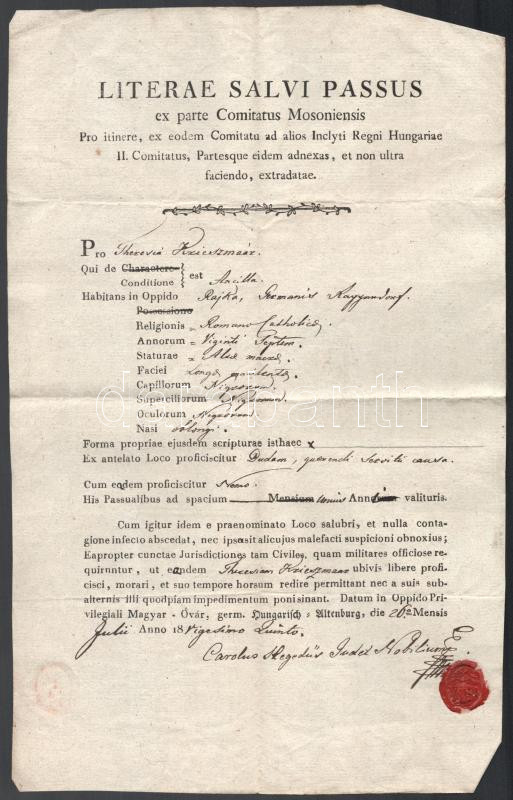 LITERAE SALVI PASSUS
ex parte Comitatus Mosoniensis
Pro itinere, ex eodem Comitatu ad alios Inclyti Regni Hungariae
II. Comitatus, Partesque eidem adnexas, et non ultra
faciendo, extradatae.
Pro Theresia Krieszmaár.
Qui de Charactere
Conditione est Ancilla.
Habitans in Oppido Rajka, Germanis Raggendorf.
Possessione
Religionis = Romano Catholicae
Annorum = Viginti Septem.
Staturae = Altae macrae.
Faciei Longae
Capillorum Nigrorum.
Superciliorum Nigrorum.
Oculorum Nigrorum.
Nasi oblongi.
Forma propriae ejusdem scripturae isthaec x
Ex antelato Loco proficiscitur Budam, quaerendi Servitii causa.
Cum eadem proficiscitur Nemo.
His Passualibus ad spacium Mensium unius Anni valituris.
Cum igitur idem e praenominato Loco salubri, et nulla conta-
gione infecto abscedat, nec ipsasit alicujus malefacti suspicioni obnoxius;
Eapropter cunctae Jurisdictiones tam Civiles, quam militares officiose re-
quiruntur, ut eandem Theresiam Krieszmaár ubivis libere profi-
cisci, morari, et suo tempore horsum redire permittant nec a suis sub-
alternis illi quodpiam impedimentum poni sinant. Datum in Oppido Pri-
vilegiali Magyar-Óvár, germ. Hungarisch-Altenburg, die 26a Mensis
Julii Anno 18 Vigesimo Quinto.
Carolus Hegedüs Judex Nobilium